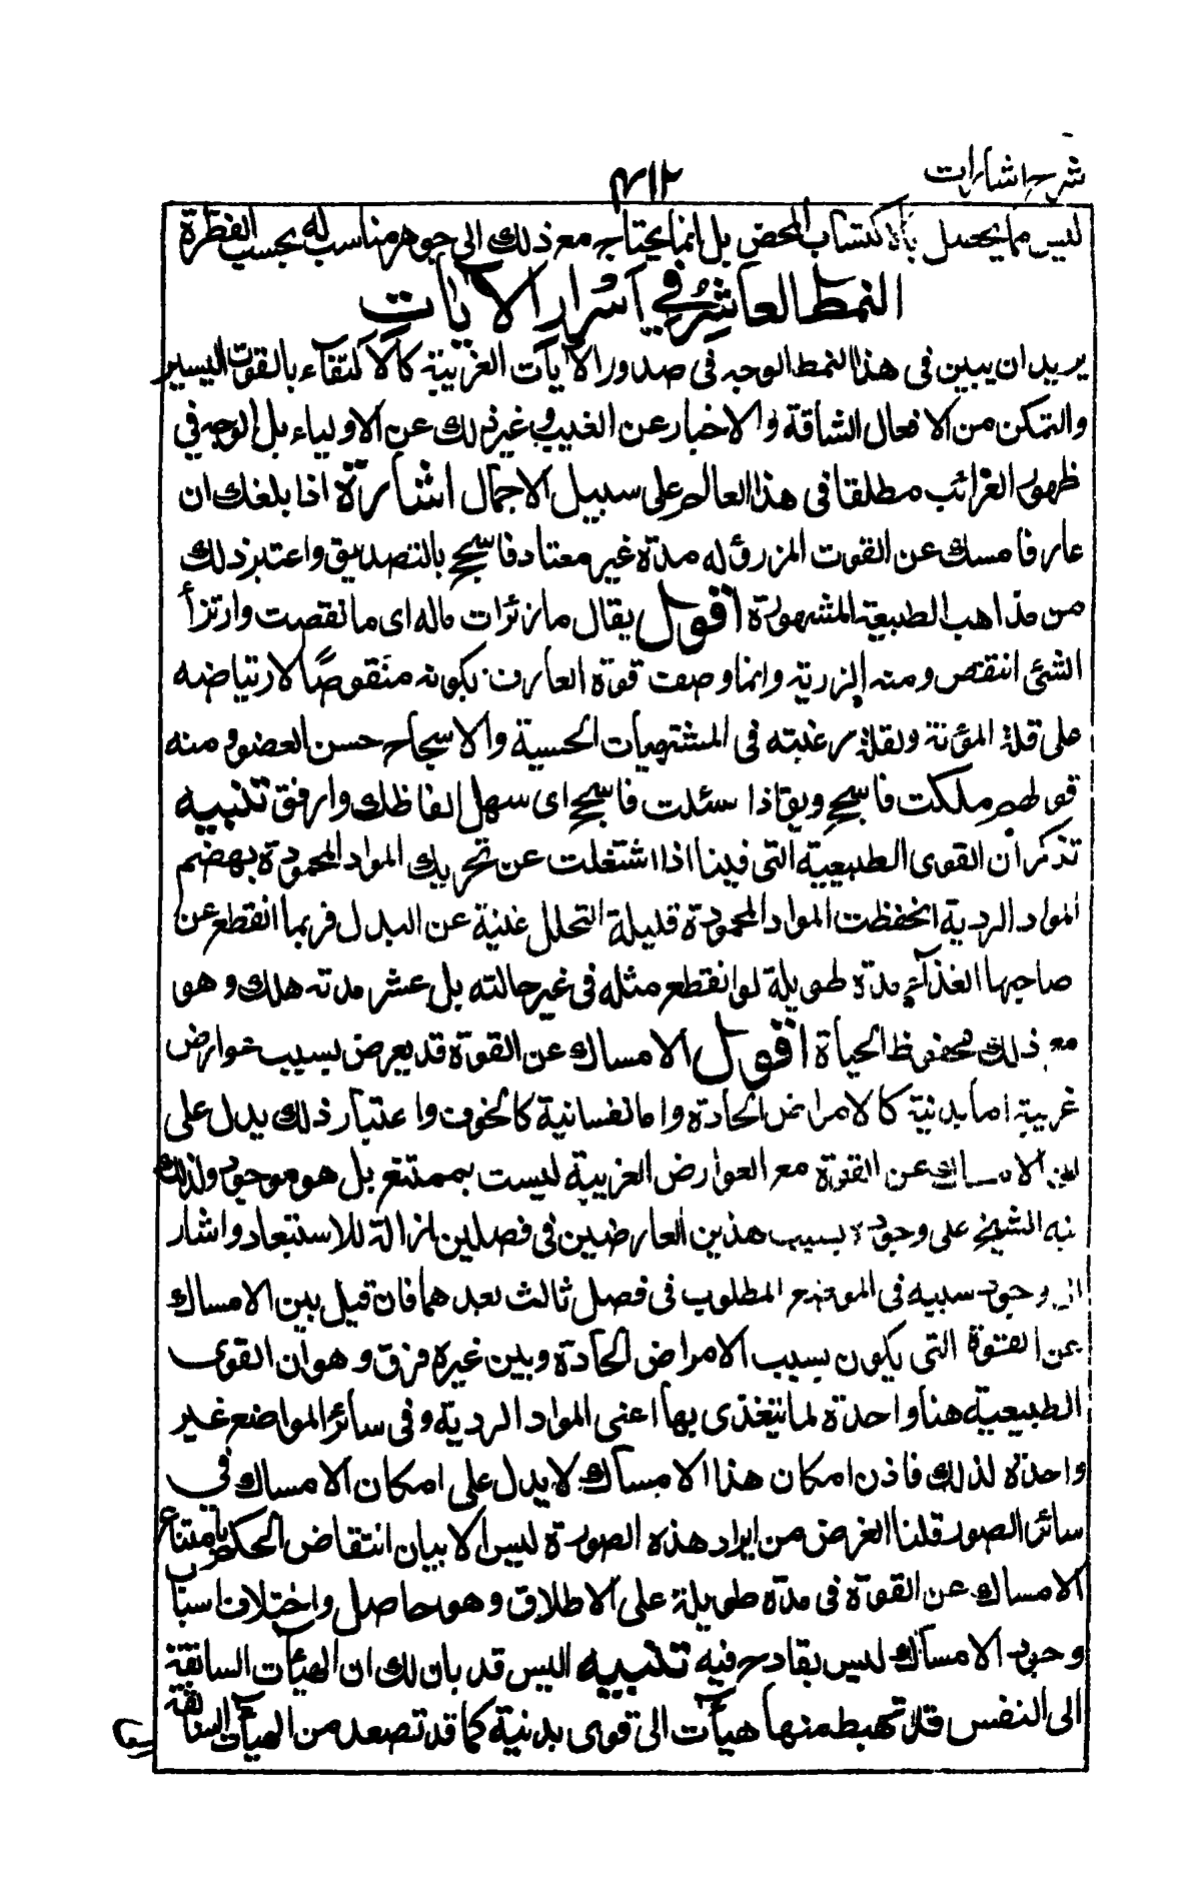 شرح اشارات
٤١٢
ليس مما يحصل بالاكتساب المحض بل انما يحتاج مع ذلك الى جوهر مناسب له بحسب الفطرة
النمط العاشر في اسرار الآيات
يريد ان يبين فى هذا النمط الوجه فى صدور الآيات الغريبة كالاكتفاء بالقوت اليسير
والتمكن من الافعال الشاقة والاخبار عن الغيب وغير ذلك عن الاولياء بل الوجه فى
ظهور الغرائب مطلقا فى هذا العالم على سبيل الاجمال اشارة اذا بلغك ان
عارفا مسك عن القوت المرزؤ له مدة غير معتاد فاسجح بالتصديق واعتبر ذلك
من مذاهب الطبيعة المشهورة اقول يقال ما رزئت ماله اى ما نقصت وارتزأ
الشئ انتقص ومنه الرزية وانما وصف قوة العارف بكونه منقوصًا لارتياضه
على قلة المؤنة ولقلة رغبته فى المشتهيات الحسية والاسجاح حسن العضو ومنه
قولهم ملكت فاسجح ويق اذا سئلت فاسجح اى سهل الفاظك وارفق تنبيه
تذكر أن القوى الطبيعية التى فينا اذا اشتغلت عن تحريك المواد المحمودة بهضم
المواد الردية انحفظت المواد المحمودة قليلة التحلل غنية عن البدل فربما انقطع عن
صاحبها الغذآء مدة طويلة لو انقطع مثله فى غير حالته بل عشر مدته هلك وهو
مع ذلك محفوظ الحياة اقول الامساك عن القوة قد يعرض بسبب عوارض
غريبة اما بدنية كالامراض الحادة واما نفسانية كالخوف واعتبار ذلك يدل على
ان الامساك عن القوة مع العوارض الغريبة ليست بممتنع بل هو موجود ولذلك
نبه الشيخ على وجوده بسبب هذين العارضين فى فصلين ازالة للاستبعاد واشار
الى وجود سببه فى الموضع المطلوب فى فصل ثالث بعدهما فان قيل بين الامساك
عن القوة التى يكون بسبب الامراض الحادة وبين غيره فرق وهو ان القوى
الطبيعية هنا واحدة لما تتغذى بها اعنى المواد الردية وفى سائر المواضع غير
واحدة لذلك فاذن امكان هذا الامساك لا يدل على امكان الامساك فى
سائر الصور قلنا الغرض من ايراد هذه الصورة ليس الا بيان انتقاض الحكم بامتناع
الامساك عن القوة فى مدة طويلة على الاطلاق وهو حاصل واختلاف اسباب
وجود الامساك ليس بقادح فيه تنبيه اليس قد بان لك ان الهيئات السابقة
الى النفس قد تهبط منها هيآت الى قوى بدنية كما قد تصعد من الهيآت السابقة